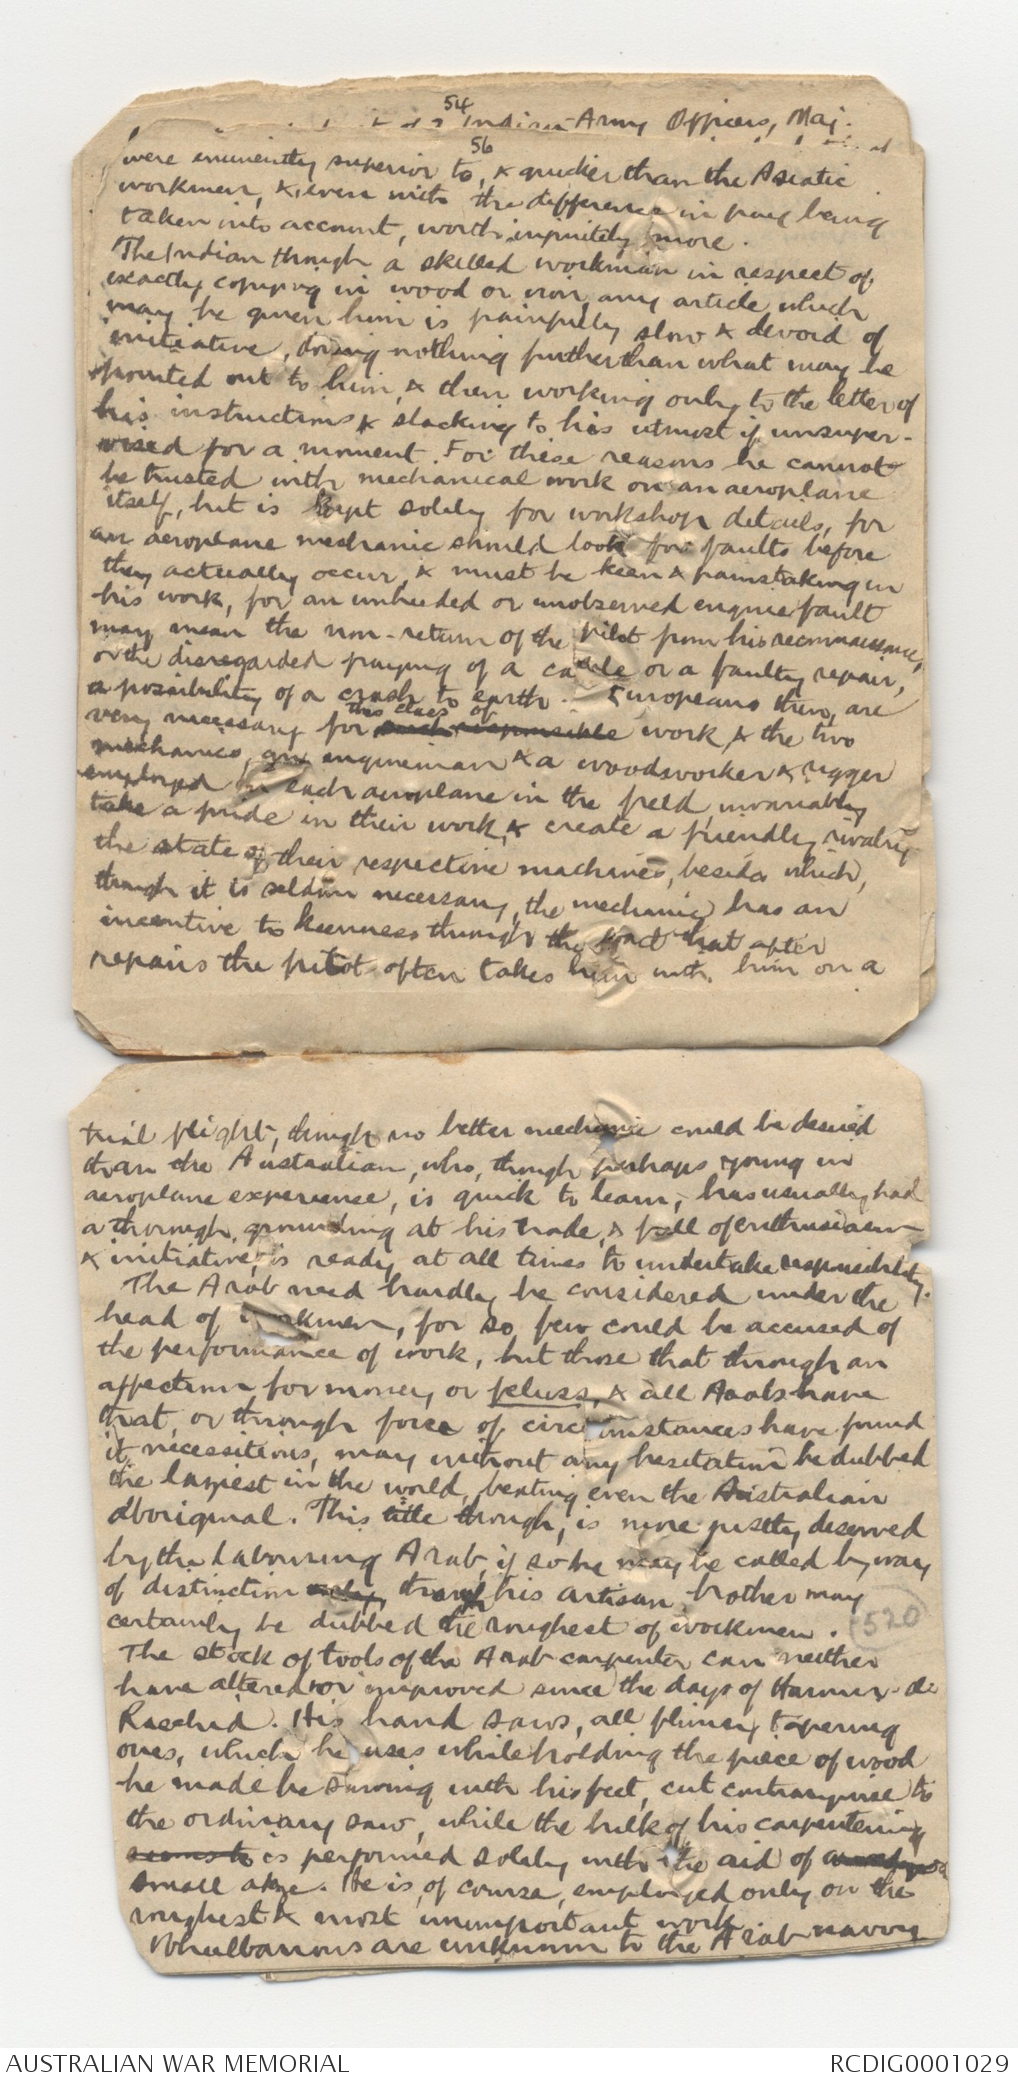 54
Indian Army Officers, Maj.
56
were eminently superior to, & quicker than the Asiatic
workmen, & even with the difference in pay being
taken into account, worth infinitely more.
The Indian though a skilled workman in respect of
exactly copying in wood or iron any article which
may be given him is painfully slow & devoid of
initiative, doing nothing further than what may be
pointed out to him, & then working only to the letter of
his instructions & slacking to his utmost if unsuper-
vised for a moment. For these reasons he cannot
be trusted with mechanical work on an aeroplane
itself, but is kept solely for workshop details, for
an aeroplane mechanic should look for faults before
they actually occur, & must be keen & painstaking in
his work, for an unheeded or unobserved engine fault
may mean the non-return of the pilot from his reconnaissance,
or the disregarded fraying of a cable or a faulty repair,
a possibility of a crash to earth. Europeans then, are
very necessary for this class of such responsible work & the two
mechanics, an engineman & a woodsworker & rigger
employed on each aeroplane in the field invariably
take a pride in their work, & create a friendly rivalry
the state of their respective machines, besides which,
though it is seldom necessary, the mechanic has an
incentive to keenness through the fact that after
repairs the pilot often takes him with him on a
trial flight, though no better mechanic could be desired
than the Australian, who, though perhaps young in
aeroplane experience, is quick to learn, has usually had
a thorough grounding at his trade, & full of enthusiasm
& initiative, is ready at all times to undertake responsibility.
The Arab need hardly be considered under the
head of workmen, for so few could be accused of
the performance of work, but those that through an
affection for money or feluss, & all Arabs have
that, or through force of circumstances have found
it necessitious, may without any hesitation be dubbed
the laziest in the world, beating even the Australian
aboriginal. This title though, is more justly deserved
by the labouring Arab, if so he may be called by way
of distinction only, though his artisan brother may
certainly be dubbed the roughest of workmen.
(520)
The stock of tools of the Arab carpenter can neither
have altered or improved since the days of Haroun-al-
Raschid. His hand saws, all flimsy tapering
ones, which he uses while holding the piece of wood
he made be sawing with his feet, cut contrarywise to
the ordinary saw, while the bulk of his carpentering
seems to is performed solely with the aid of a
small adze. He is, of course, employed only on the
roughest & most unimportant work.
Wheelbarrows are unknown to the Arab navvy
AUSTRALIAN WAR MEMORIAL
RCDIG0001029